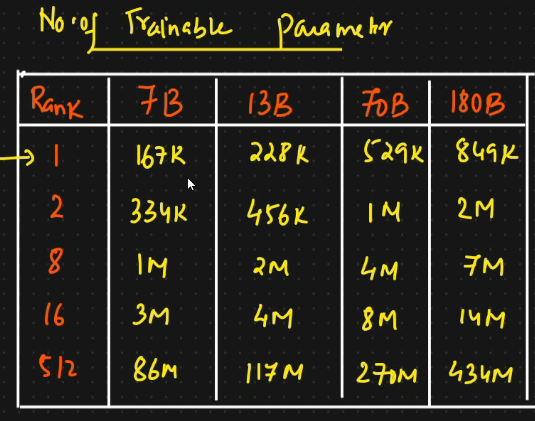 No. of Trainable Parameter
Rank 7B 13B 70B 180B
1 167K 228K 529K 849K
2 334K 456K 1M 2M
8 1M 2M 4M 7M
16 3M 4M 8M 14M
512 86M 117M 270M 434M